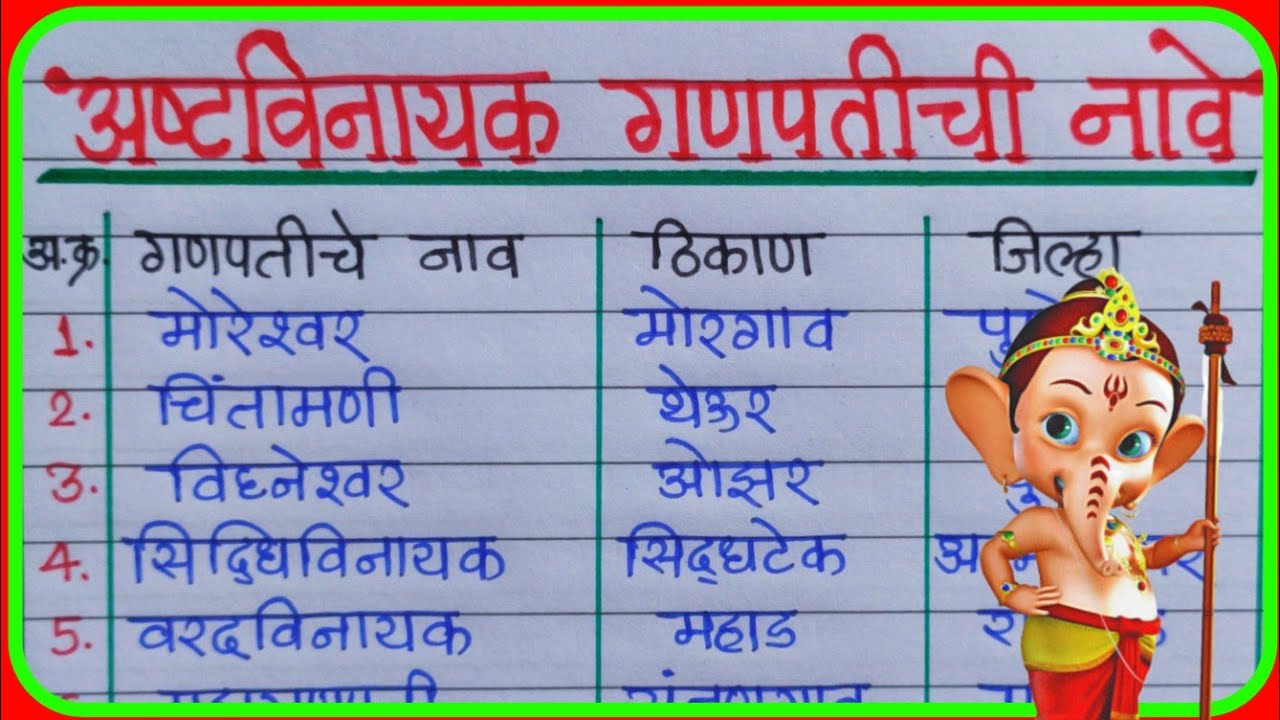 अष्टविनायक गणपतीची नावे
अ.क्र. गणपतीचे नाव ठिकाण जिल्हा
1. मोरेश्वर मोरगाव
2. चिंतामणी थेऊर
3. विघ्नेश्वर ओझर
4. सिद्धिविनायक सिद्धटेक
5. वरदविनायक महाड